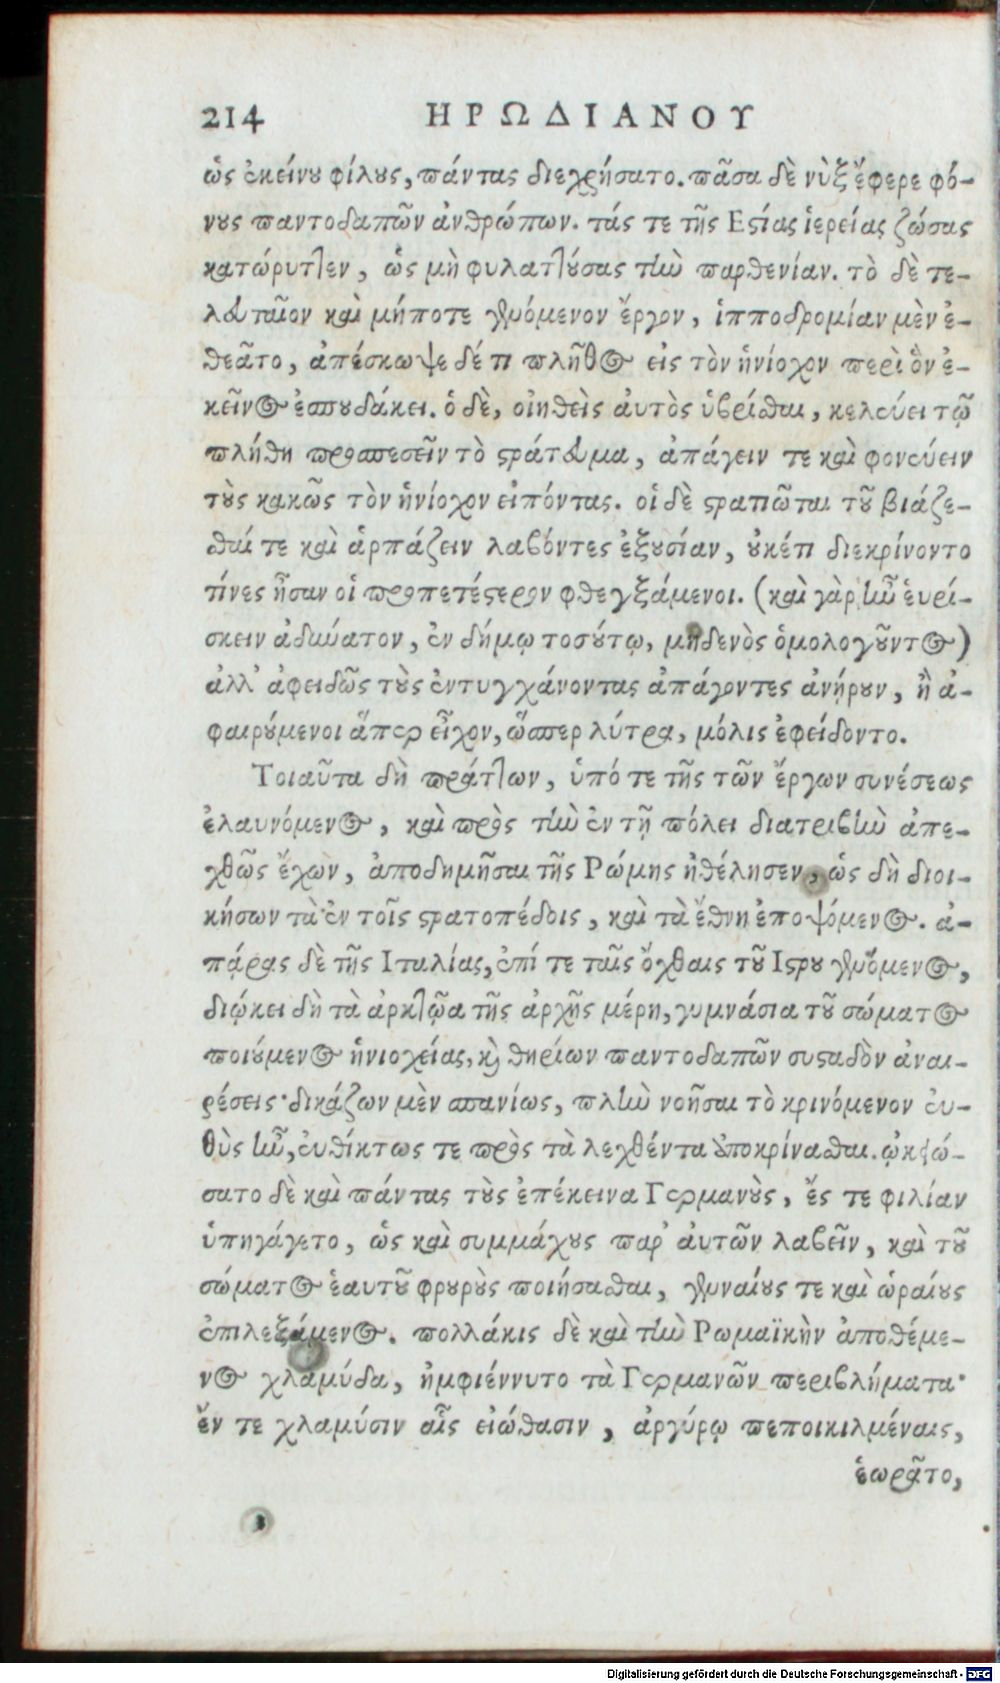 214 ΗΡΩΔΙΑΝΟΥ
ὡς ἐκείνου φίλους, πάντας διεχρήσατο. πᾶσα δὲ νὺξ ἔφερε φό-
νους παντοδαπῶν ἀνθρώπων. τάς τε τῆς Εστίας ἱερείας ζώσας
κατώρυττεν, ὡς μὴ φυλαττούσας τὴν παρθενίαν. τὸ δὲ τε-
λευταῖον καὶ μήποτε γενόμενον ἔργον, ἱπποδρομίαν μὲν ἐ-
θεᾶτο, ἀπέσκωψε δέ τι πλῆθος εἰς τὸν ἡνίοχον περὶ ὃν ἐ-
κεῖνος ἐσπουδάκει. ὁ δὲ, οἰηθεὶς αὐτὸς ὑβρίσθαι, κελεύει τῷ
πλήθει προσπεσεῖν τὸ στράτευμα, ἀπάγειν τε καὶ φονεύειν
τοὺς κακῶς τὸν ἡνίοχον εἰπόντας. οἱ δὲ στρατιῶται τοῦ βιάζε-
σθαί τε καὶ ἁρπάζειν λαβόντες ἐξουσίαν, οὐκέτι διεκρίνοντο
τίνες ἦσαν οἱ προπετέστερον φθεγξάμενοι. (καὶ γὰρ ἦν εὑρί-
σκειν ἀδύνατον, ἐν δήμῳ τοσούτῳ, μηδενὸς ὁμολογοῦντος)
ἀλλ᾽ ἀφειδῶς τοὺς ἐντυγχάνοντας ἀπάγοντες ἀνῄρουν, ἢ ἀ-
φαιρούμενοι ἅπερ εἶχον, ὥσπερ λύτρα, μόλις ἐφείδοντο.
Τοιαῦτα δὴ πράττων, ὑπό τε τῆς τῶν ἔργων συνέσεως
ἐλαυνόμενος, καὶ πρὸς τὴν ἐν τῇ πόλει διατριβὴν ἀπε-
χθῶς ἔχων, ἀποδημῆσαι τῆς Ρώμης ἠθέλησεν, ὡς δὴ διοι-
κήσων τὰ ἐν τοῖς στρατοπέδοις, καὶ τὰ ἔθνη ἐποψόμενος. ἀ-
πάρας δὲ τῆς Ιταλίας, ἐπί τε ταῖς ὄχθαις τοῦ Ιστρου γενόμενος,
διῴκει δὴ τὰ ἀρκτῷα τῆς ἀρχῆς μέρη, γυμνάσια τοῦ σώματος
ποιούμενος ἡνιοχείας, καὶ θηρίων παντοδαπῶν συσταδὸν ἀναι-
ρέσεις· δικάζων μὲν σπανίως, πλὴν νοῆσαι τὸ κρινόμενον εὐ-
θὺς ἦν, εὐθίκτως τε πρὸς τὰ λεχθέντα ὑποκρίνασθαι. ᾠκειώ-
σατο δὲ καὶ πάντας τοὺς ἐπέκεινα Γερμανοὺς, ἔς τε φιλίαν
ὑπηγάγετο, ὡς καὶ συμμάχους παρ᾽ αὐτῶν λαβεῖν, καὶ τοῦ
σώματος ἑαυτοῦ φρουροὺς ποιήσασθαι, γενναίους τε καὶ ὡραίους
ἐπιλεξάμενος. πολλάκις δὲ καὶ τὴν Ρωμαϊκὴν ἀποθέμε-
νος χλαμύδα, ἠμφιέννυτο τὰ Γερμανῶν περιβλήματα·
ἔν τε χλαμύσιν αἷς εἰώθασιν, ἀργύρῳ πεποικιλμέναις,
ἑωρᾶτο,
Digitalisierung gefördert durch die Deutsche Forschungsgemeinschaft - DFG